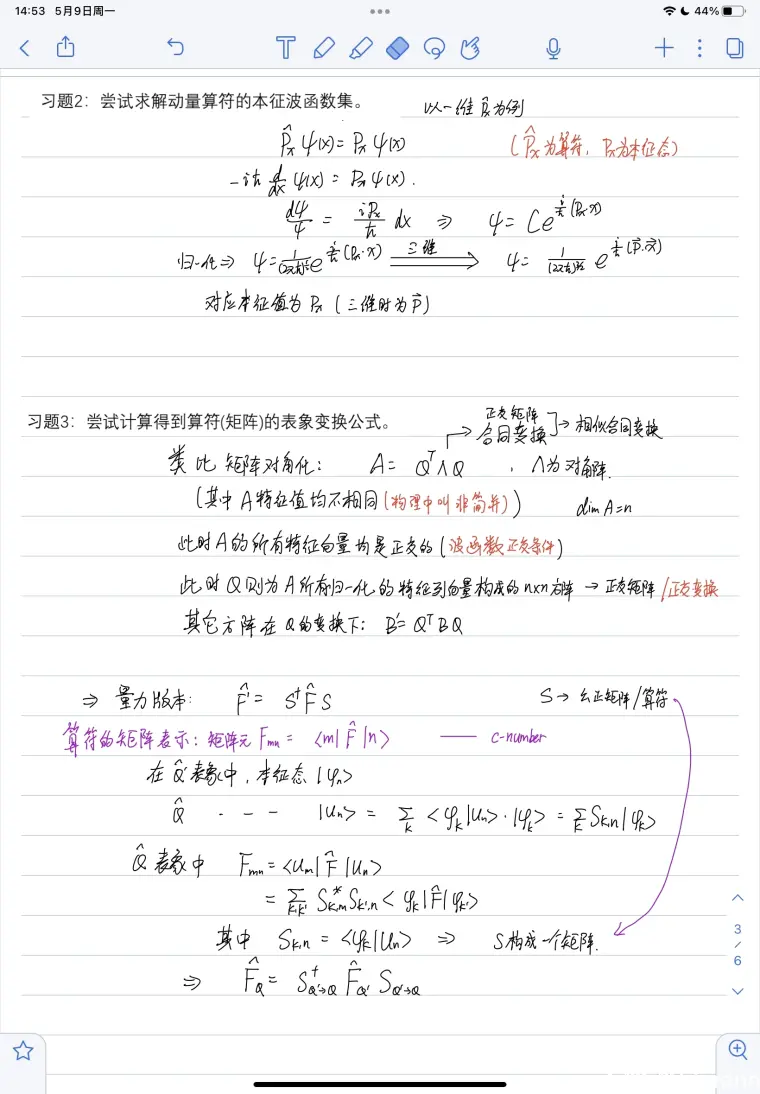 14:53 5月9日周一
44%
习题2：尝试求解动量算符的本征波函数集。
以一维 P̂x 为例
P̂x ψ(x) = Px ψ(x)
(P̂x 为算符，Px 为本征态)
-iħ d/dx ψ(x) = Px ψ(x).
dψ/ψ = iPx/ħ dx ⇒ ψ = C e^{i/ħ (Px·x)}
归一化 ⇒ ψ = 1/(2πħ)^{1/2} e^{i/ħ (Px·x)} 三维 ψ = 1/(2πħ)^{3/2} e^{i/ħ (p⃗·x⃗)}
对应本征值为 Px (三维时为 p⃗)
习题3：尝试计算得到算符(矩阵)的表象变换公式。
正交矩阵
合同变换 → 相似合同变换
类比矩阵对角化： A = Q^T Λ Q ，Λ为对角阵.
(其中 A 特征值均不相同 (物理中叫非简并)) dim A = n
此时 A 的所有特征向量均是正交的 (波函数正交条件)
此时 Q 则为 A 所有归一化的特征向量构成的 n×n 方阵 → 正交矩阵 / 正交变换
其它方阵在 Q 的变换下： B' = Q^T B Q
⇒ 量力版本： F̂' = S† F̂ S S → 幺正矩阵/算符
算符的矩阵表示：矩阵元 Fmn = ⟨m|F̂|n⟩ —— c-number
在 Q̂' 表象中，本征态 |φn⟩
Q̂ - - - |un⟩ = Σ_k ⟨φk|un⟩·|φk⟩ = Σ_k Sk,n |φk⟩
Q̂ 表象中 Fmn = ⟨um|F̂|un⟩
= Σ_{k,k'} S*k,m Sk',n ⟨φk|F̂|φk'⟩
其中 Sk,n = ⟨φk|un⟩ ⇒ S构成一个矩阵.
⇒ F̂_Q = S†_{Q'→Q} F̂_{Q'} S_{Q'→Q}
3
/
6